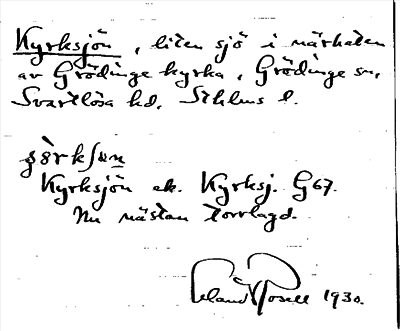 Kyrksjön, liten sjö i närheten
av Grödinge kyrka, Grödinge sn,
Svartlösa hd, Sthlms l.
Kyrksjön ek. Kyrksj. G67.
Nu nästan torrlagd.
Erland Rosell 1930.